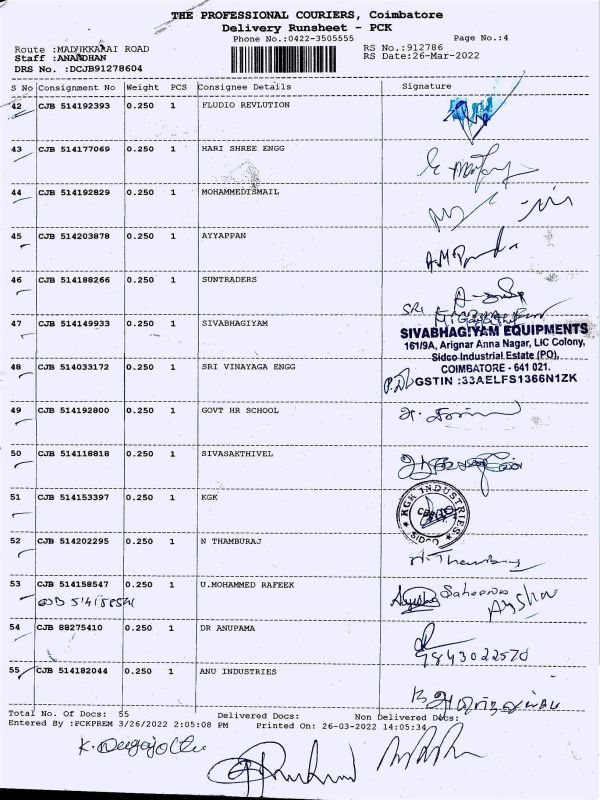 THE PROFESSIONAL COURIERS, Coimbatore
Delivery Runsheet - PCK
Phone No.:0422-3505555 Page No.:4
Route :MADUKKARAI ROAD RS No.:912786
Staff :ANANDHAN RS Date:26-Mar-2022
DRS No. :DCJB91278604
S No Consignment No Weight PCS Consignee Details Signature
42 CJB 514192393 0.250 1 FLUDIO REVLUTION
43 CJB 514177069 0.250 1 HARI SHREE ENGG
44 CJB 514192829 0.250 1 MOHAMMEDISMAIL
45 CJB 514203878 0.250 1 AYYAPPAN
46 CJB 514188266 0.250 1 SUNTRADERS
SRI
47 CJB 514149933 0.250 1 SIVABHAGIYAM
SIVABHAGIYAM EQUIPMENTS
161/9A, Arignar Anna Nagar, LIC Colony,
Sidco Industrial Estate (PO),
COIMBATORE - 641 021.
GSTIN :33AELFS1366N1ZK
48 CJB 514033172 0.250 1 SRI VINAYAGA ENGG
49 CJB 514192800 0.250 1 GOVT HR SCHOOL
50 CJB 514118818 0.250 1 SIVASAKTHIVEL
51 CJB 514153397 0.250 1 KGK
KGK INDUSTRIES
SIDCO
52 CJB 514202295 0.250 1 N THAMBURAJ
53 CJB 514158547 0.250 1 U.MOHAMMED RAFEEK
54 CJB 88275410 0.250 1 DR ANUPAMA
9843022570
55 CJB 514182044 0.250 1 ANU INDUSTRIES
Total No. Of Docs: 55 Delivered Docs: Non Delivered Docs:
Entered By :PCKPREM 3/26/2022 2:05:08 PM Printed On: 26-03-2022 14:05:34